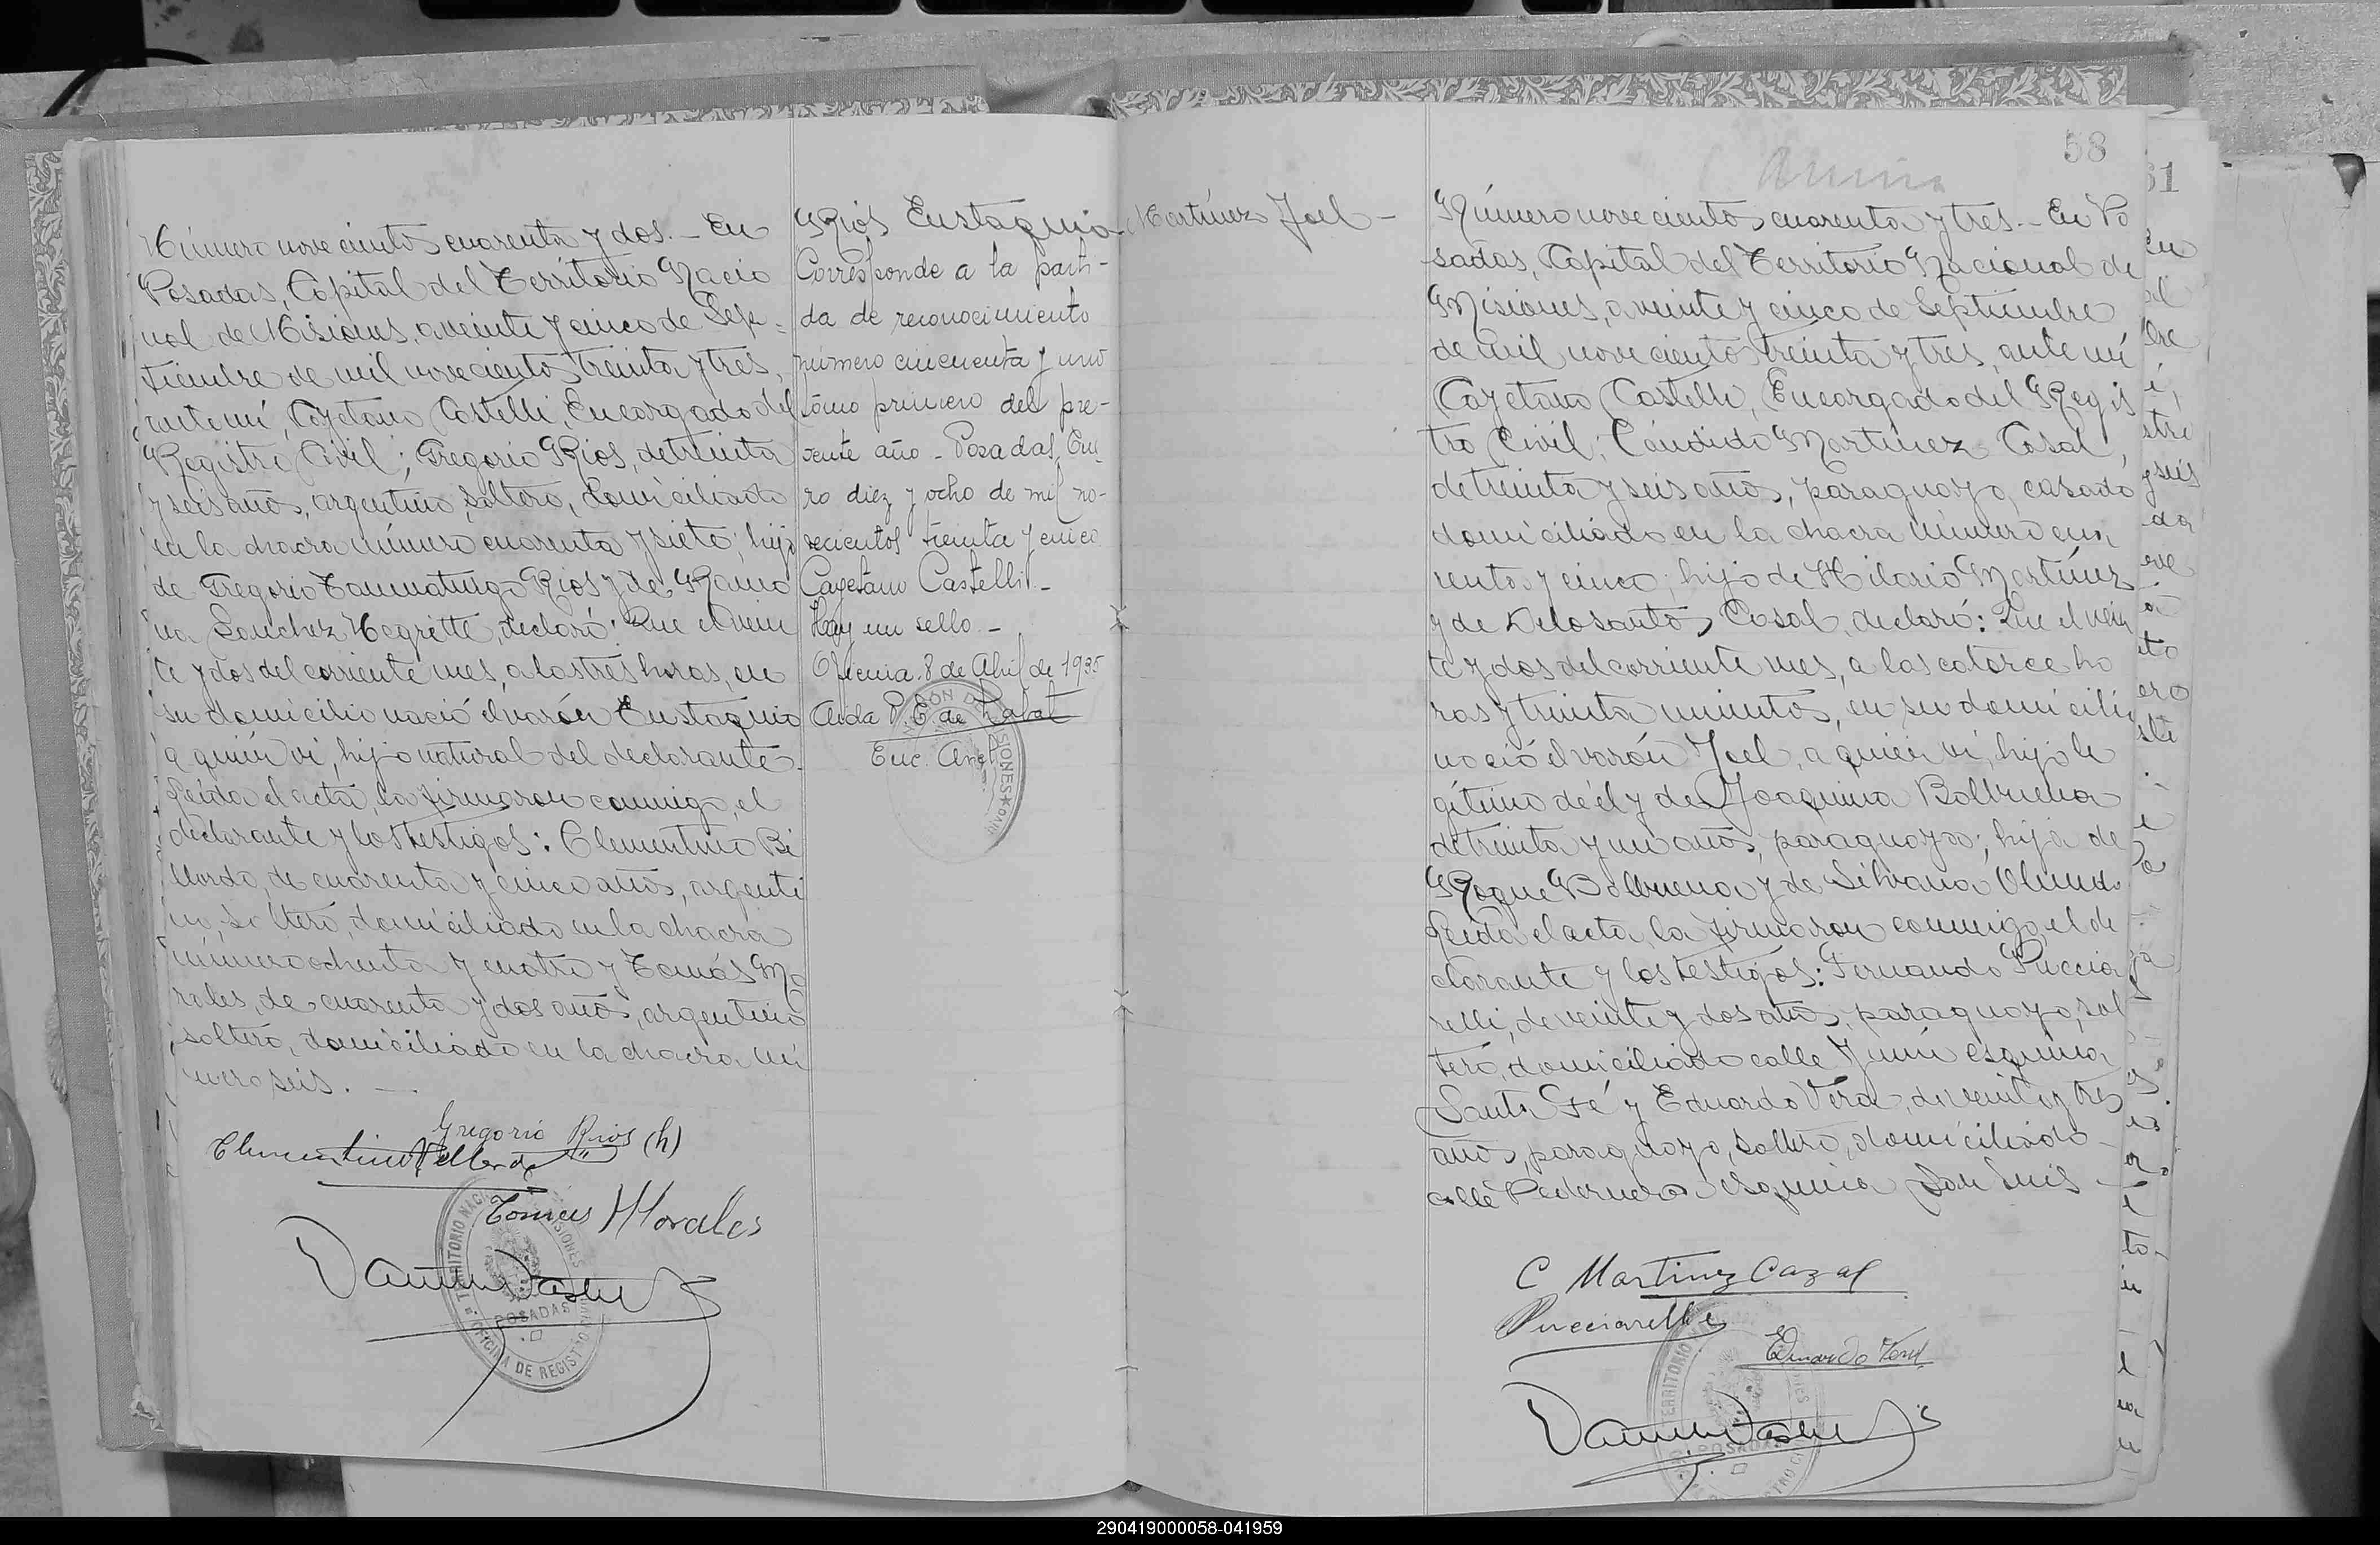 Número novecientos cuarenta y dos. - En
Posadas, Capital del Territorio Nacio
nal de Misiones, a veinte y cinco de Sep-
tiembre de mil novecientos treinta y tres,
ante mí, Cayetano Castelli, Encargado del
Registro Civil; Gregorio Rios, de treinta
y seis años, argentino, soltero, domiciliado
en la chacra número cuarenta y siete; hijo
de Gregorio Taumaturgo Rios y de Ramo
na Sanchez Negrette, declaró: Que el vein
te y dos del corriente mes, a las tres horas, en
su domicilio nació el varón Eustaquio
a quién ví, hijo natural del declarante.
Leída el acta, la firmaron conmigo, el
declarante y los testigos: Clementino Bi
llordo, de cuarenta y cinco años, argenti
no, soltero, domiciliado en la chacra
número ochenta y cuatro y Tomás Mo
rales, de cuarenta y dos años, argentino
soltero, domiciliado en la chacra nú
mero seis. -
Gregorio Rios (h)
Clementino
Tomas Morales
TERRITORIO NACIONAL MISIONES
POSADAS
OFICINA DE REGISTRO
Rios Eustaquio
Corresponde a la parti-
da de reconocimiento
número cincuenta y uno
tomo primero del pre-
sente año - Posadas, Ene
ro diez y ocho de mil no-
vecientos treinta y cinco
Cayetano Castelli -
Hay un sello. -
Oficina. 8 de Abril de 1935
Aida P. E. de
Enc. Arch
MISIONES
Martínez Joel -
58
Número novecientos cuarenta y tres. - En Po
sadas, Capital del Territorio Nacional de
Misiones, a veinte y cinco de Septiembre
de mil novecientos treinta y tres, ante mí
Cayetano Castelli, Encargado del Regis
tro Civil; Cándido Martínez Casal,
de treinta y seis años, paraguayo, casado
domiciliado en la chacra número cua
renta y cinco; hijo de Hilario Martínez
y de Delosanto Casal, declaró: Que el vein
te y dos del corriente mes, a las catorce ho
ras y treinta minutos, en su domicilio
nació el varón Joel, a quién ví, hijo le
gítimo de él y de Joaquina Balbuena
de treinta y un años, paraguaya; hija de
Roque Balbuena y de Silvana Olmedo
Leída el acta, la firmaron conmigo, el de
clarante y los testigos: Fernando Puccia
relli, de veinte y dos años, paraguayo, sol
tero, domiciliado calle Junín esquina
Santa Fé y Eduardo Vera, de veinte y tres
años, paraguayo, soltero, domiciliado
calle Pedernera esquina San Luis -
C Martinez Cazal
Pucciarelli
Eduardo Vera
TERRITORIO
POSADAS
31
290419000058-041959